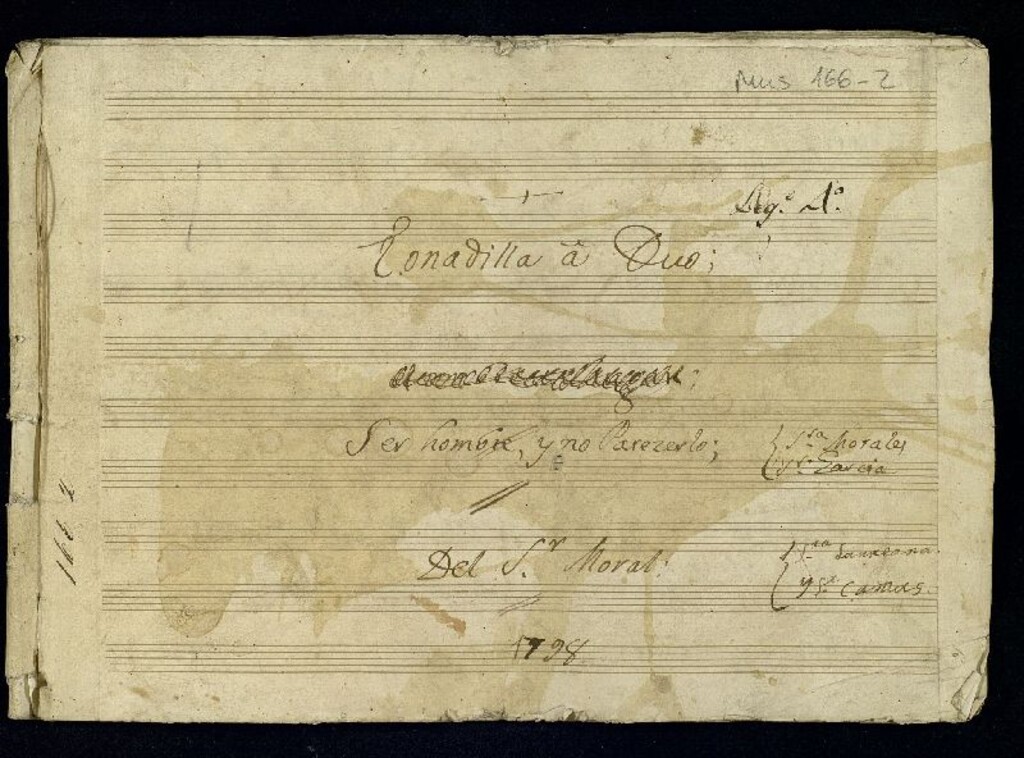 Mus 166-2
Leg.º 1.º
Tonadilla â Duo;
Ser hombre, y no Parezerlo;
{ S.ra Morales
y S.r Garcia
Del S.r Moral:
{ S.ra
y S.r Camas.
1798
166-2